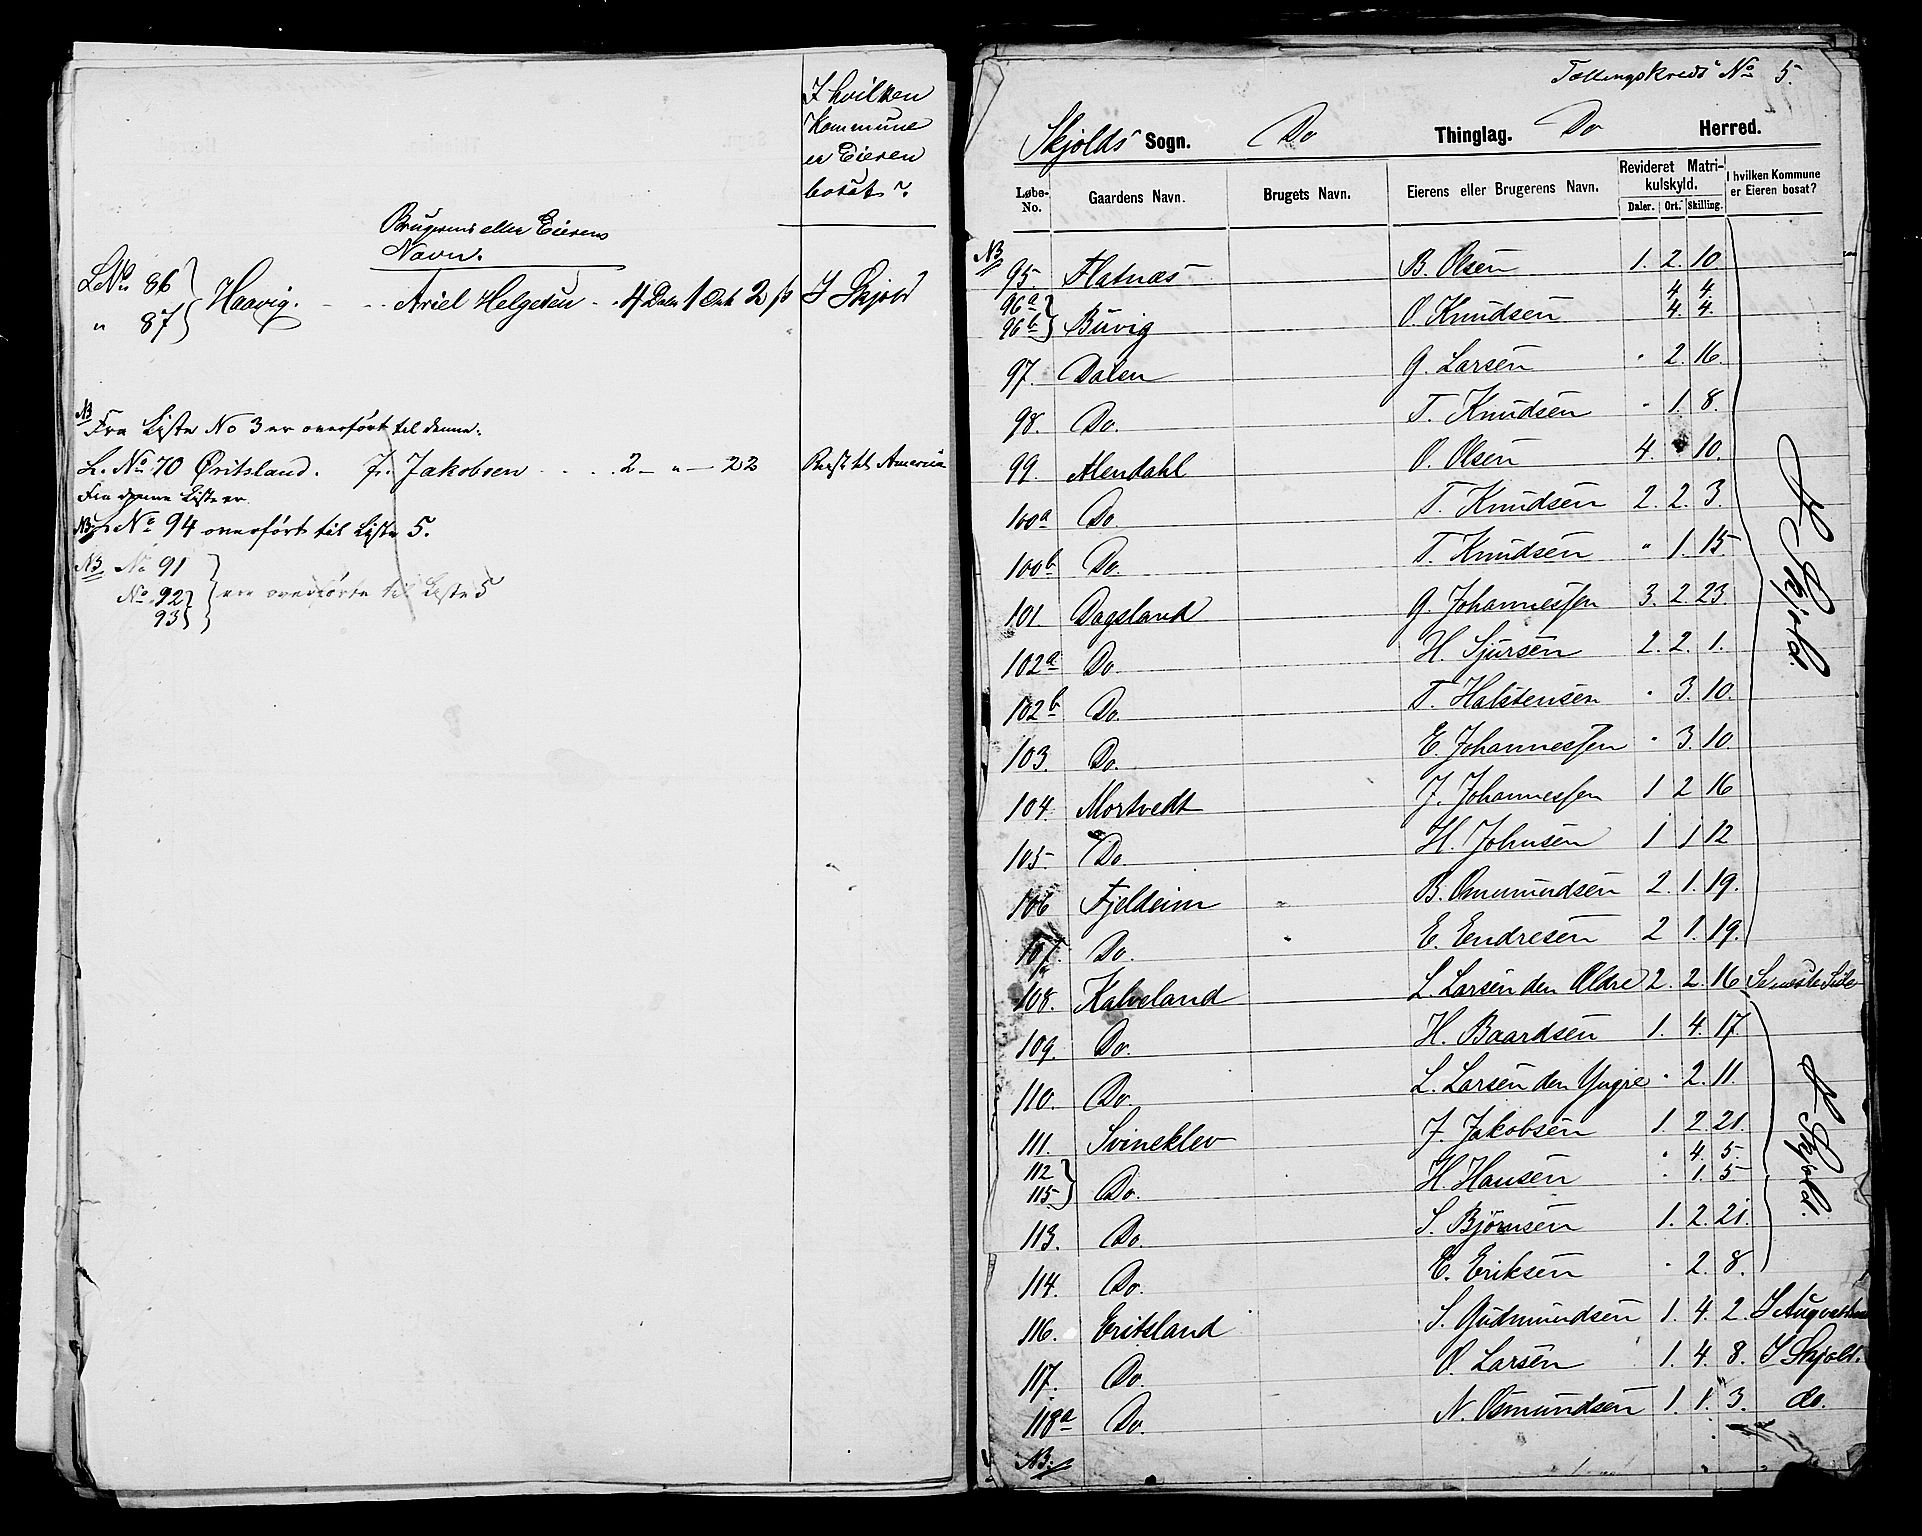 I hvilken
Kommune
er Eieren
bosat?
Brugerens eller Eierens
Navn.
LNo 86
" 87 } Haavig. - - Ariel Helgesen - . 4 Daler 1 Ort 2 ß I Skjold
NB
Fra Liste No 3 er overført til denne:
L. No 70 Øritsland. J. Jakobsen . . . . 2 - " - 22 Reist til Amerika
Fra denne Liste er
NB L No 94 overført til Liste 5.
NB No 91
No 92
93 } ere overførte til Liste 5
Tællingskreds No 5.
Skjolds Sogn. Do Thinglag. Do Herred.
Løbe-No. Gaardens Navn. Brugets Navn. Eierens eller Brugerens Navn. Revideret Matrikulskyld. I hvilken Kommune er Eieren bosat?
Daler. Ort. Skilling.
NB
95. Flatnæs B. Olsen 1. 2. 10
96a 4 4
96b } Buvig O. Knudsen 4. 4.
97. Dalen G. Larsen " 2. 16.
98. Do. T. Knudsen " 1. 8.
99. Alendahl O. Olsen 4. " 10.
100a Do T. Knudsen 2. 2. 3.
100b Do. T. Knudsen " 1. 15
101 Dagsland G. Johannessen 3. 2. 23.
102a Do. H. Sjursen 2. 2. 1.
102b Do. T. Halstensen " 3. 10.
103. Do. E. Johannessen " 3. 10
I Skjold.
104. Mortvedt J. Johannessen 1 2 16
105 Do. H. Johnsen 1 1 12
106 Fjeldeim " B. Osmundsen 2. 1. 19.
107. Do. " E. Endresen 2 1. 19.
108. Kalveland L. Larsen den Ældre 2. 2. 16 Se næste Side
109. Do. H. Baardsen 1. 4. 17
110. Do. L. Larsen den Yngre " 2. 11.
111. Svineklev J. Jakobsen 1. 2. 21.
112 " 4. 5.
115 } Do. H. Hansen " 1. 5
113. Do. S. Bjørnsen 1. 2. 21.
114. Do. E. Eriksen " 2. 8.
I Skjold.
116. Eritsland S. Gudmundsen 1. 4. 2.
117. Do. O. Larsen 1. 4. 8. I Skjold.
118a Do. N. Osmundsen 1. 1. 3. do.
NB.